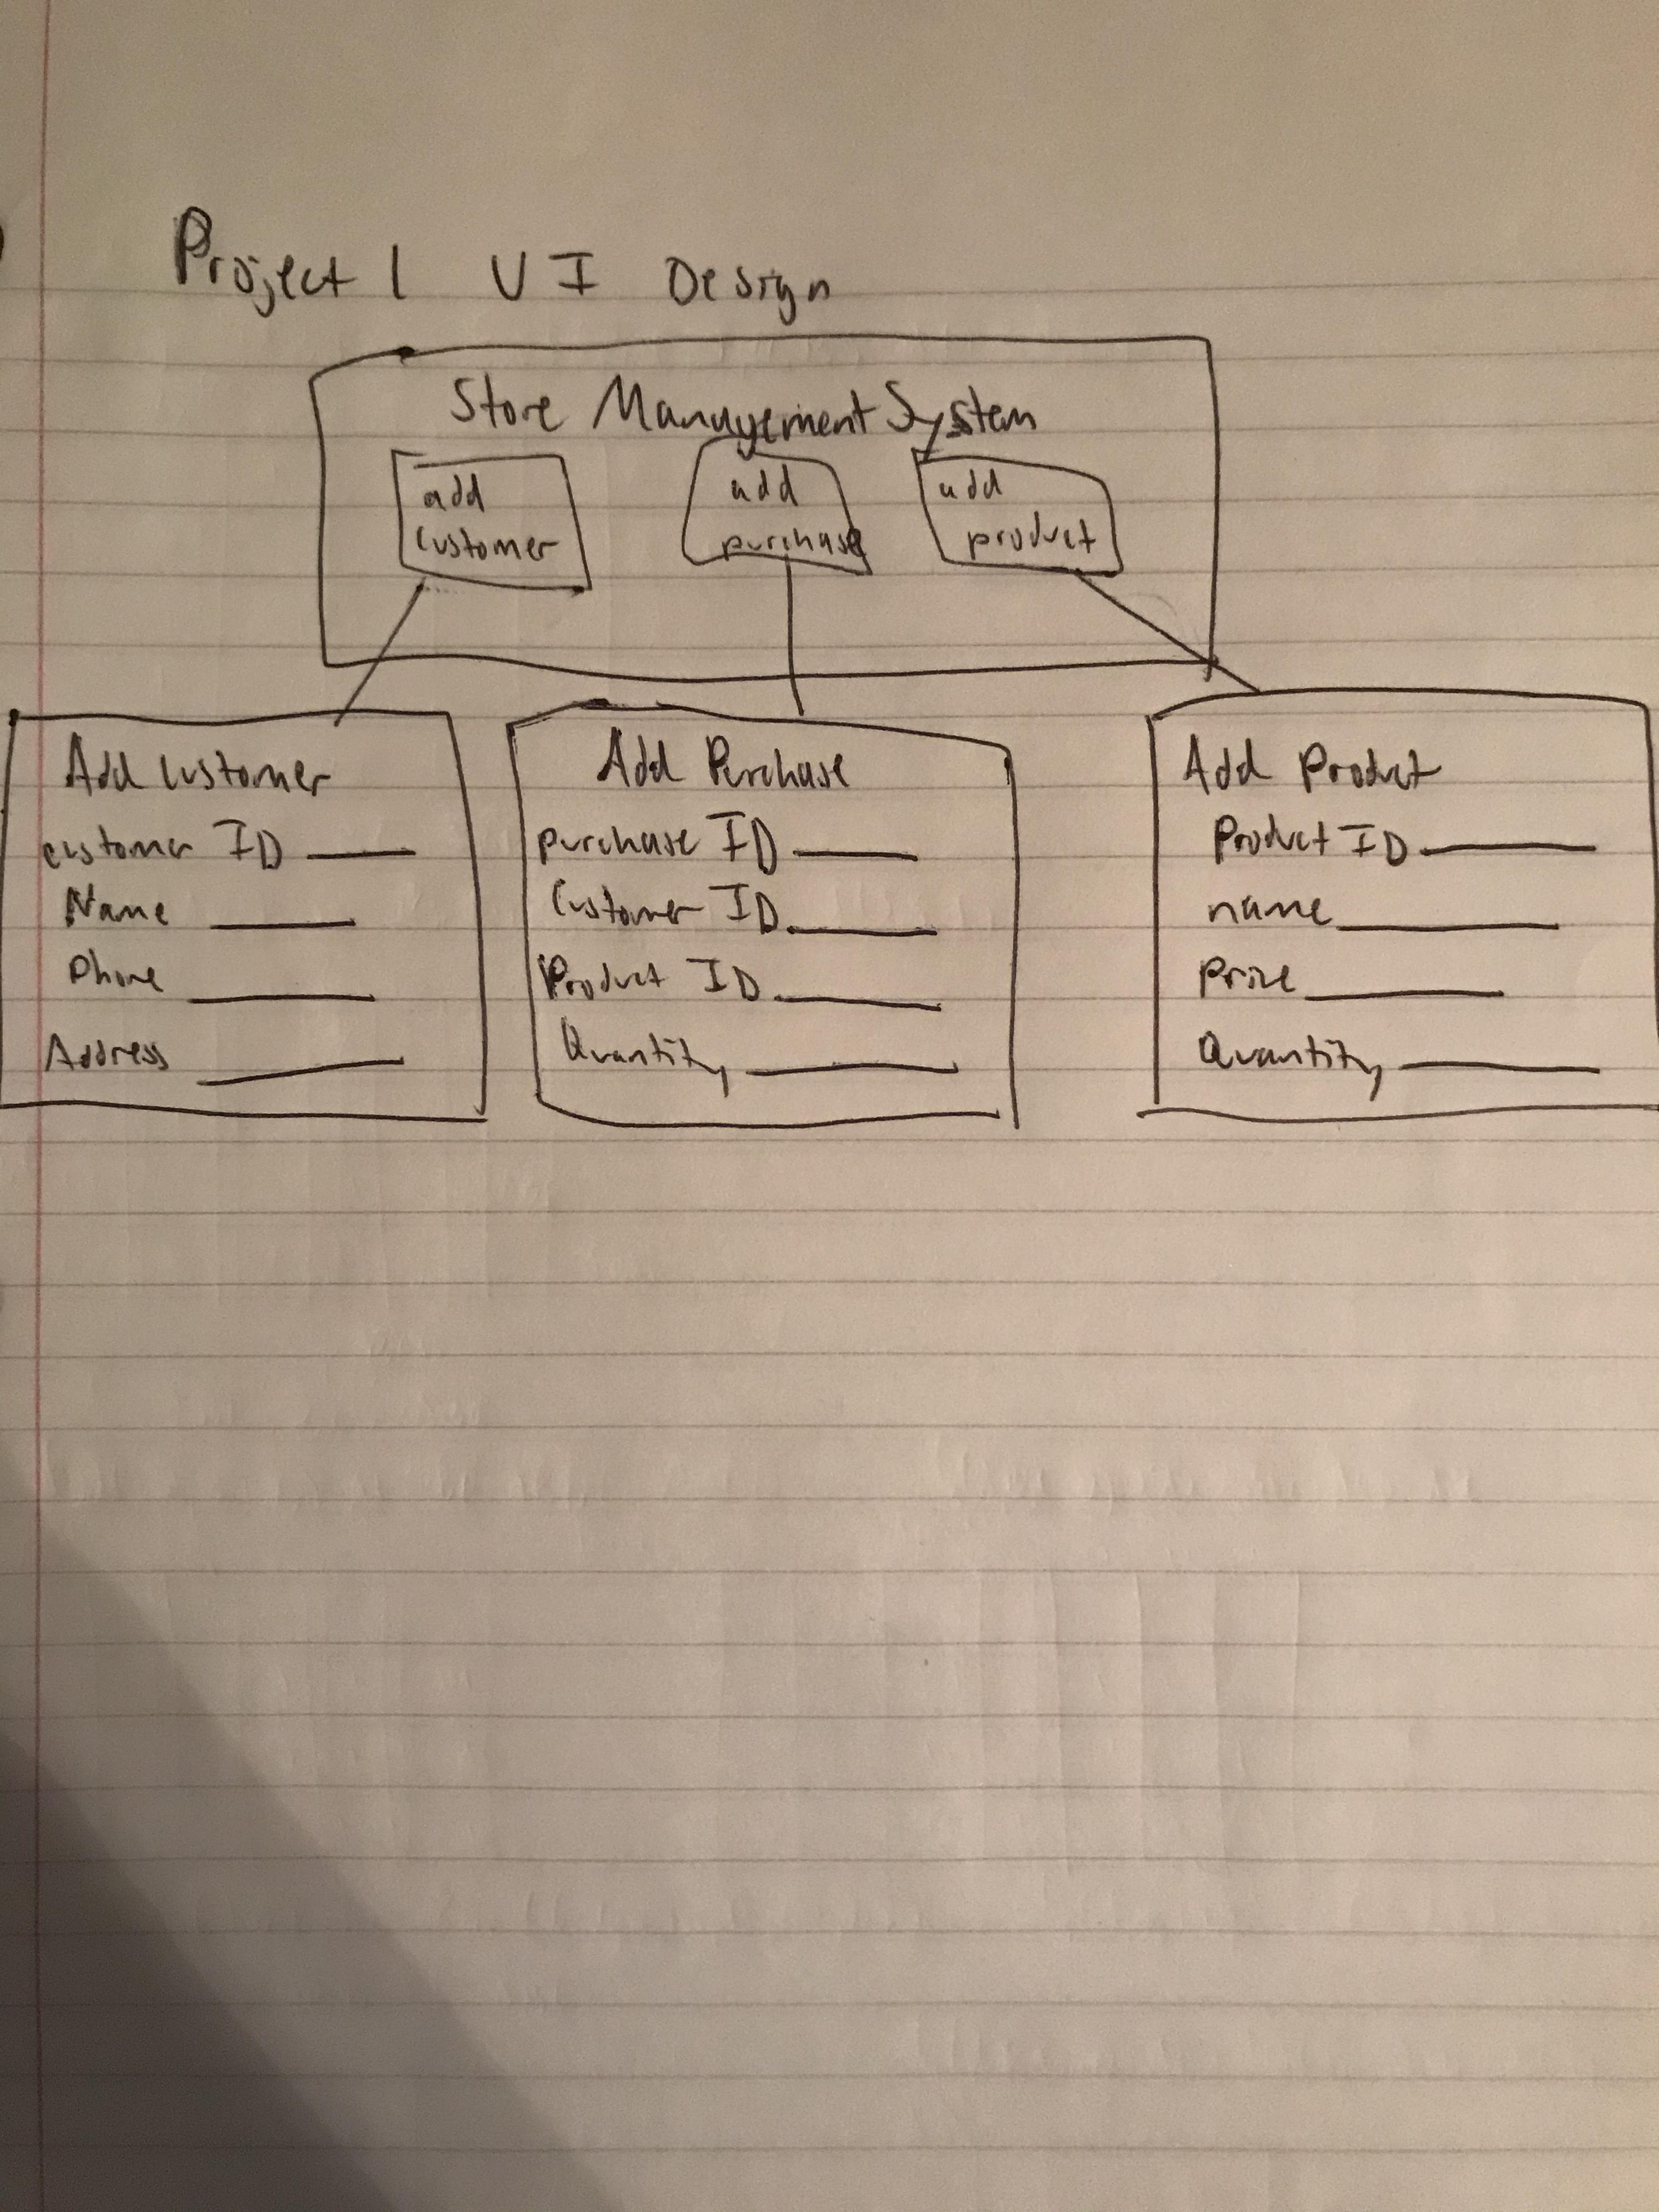 Project 1 UI Design
Store Management System
add
customer
add
purchase
add
product
Add customer
customer ID
Name
Phone
Address
Add Purchase
purchase ID
Customer ID
Product ID
Quantity
Add Product
Product ID
name
Price
Quantity